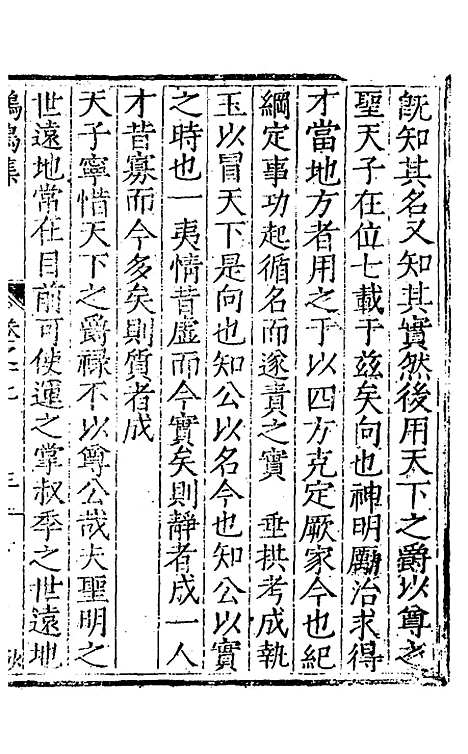 旣知其名又知其實然後用天下之爵以尊之
聖天子在位七載于兹矣向也神明勵治求得
才當地方者用之于以四方克定厥家今也紀
綱定事功起循名而遂責之實　垂拱考成執
玉以冒天下是向也知公以名今也知公以實
之時也一夷情昔虛而今實矣則靜者成一人
才昔寡而今多矣則質者成
天子寧惜天下之爵祿不以尊公哉夫聖明之
世遠地常在目前可使運之掌叔季之世遠地
集　卷之七